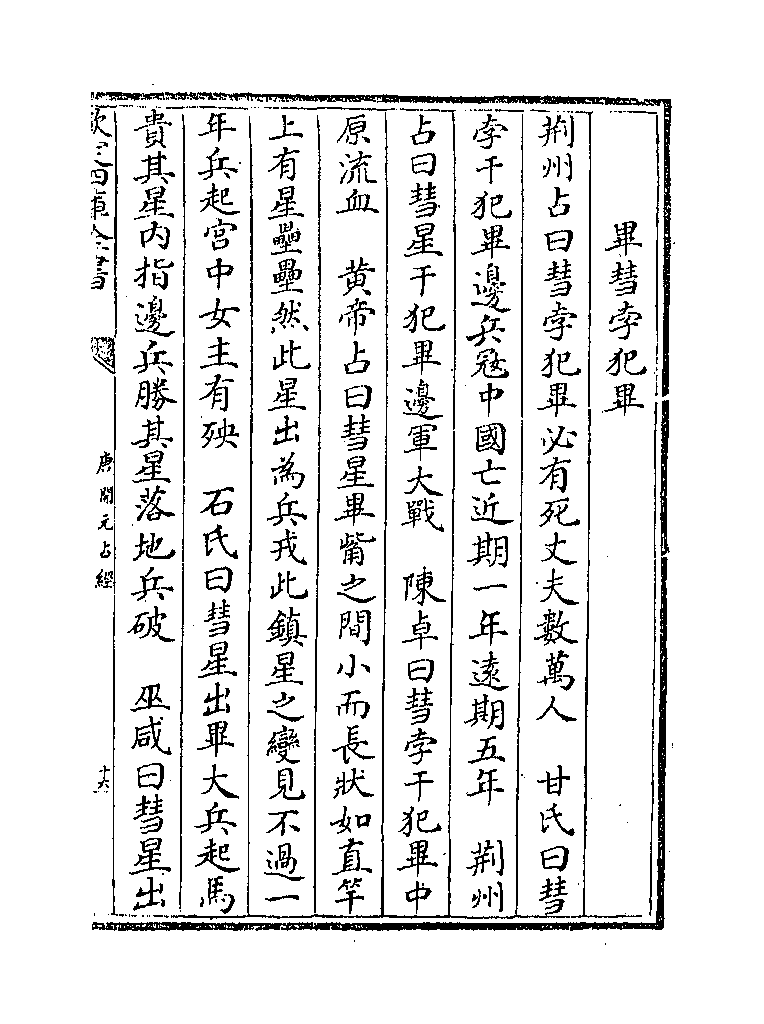 畢彗孛犯畢
荆州占曰彗孛犯畢必有死丈夫數萬人　甘氏曰彗
孛干犯畢邊兵冦中國亡近期一年遠期五年　荆州
占曰彗星干犯畢邊軍大戰　陳卓曰彗孛干犯畢中
原流血　黄帝占曰彗星畢觜之間小而長狀如直竿
上有星壘壘然此星出為兵戎此鎮星之變見不過一
年兵起宫中女主有殃　石氏曰彗星出畢大兵起馬
貴其星内指邊兵勝其星落地兵破　巫咸曰彗星出
欽定四庫全書
唐開元占經
十六